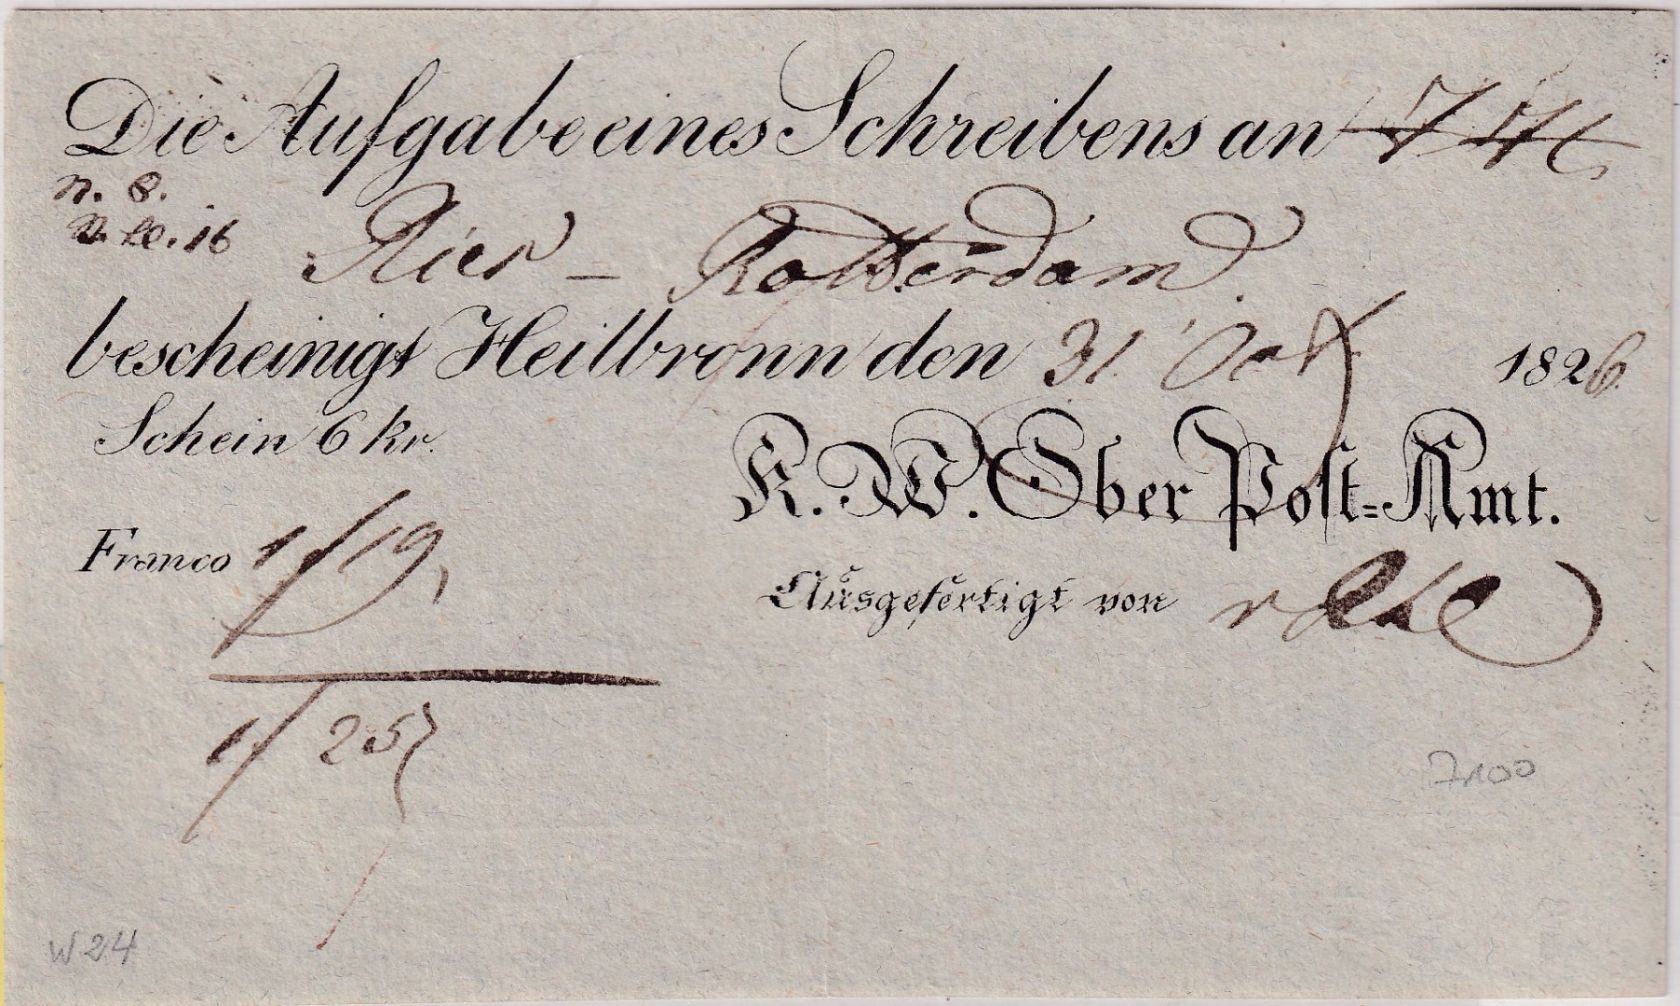 Die Aufgabe eines Schreibens an
n. 8.
16
Rier – Rotterdam.
bescheinigt Heilbronn den 31. Oct 1826.
Schein 6 kr.
K. W. Ober Post=Amt.
Franco 1 f 19,
Ausgefertigt von
1 f 25
7100
W 24